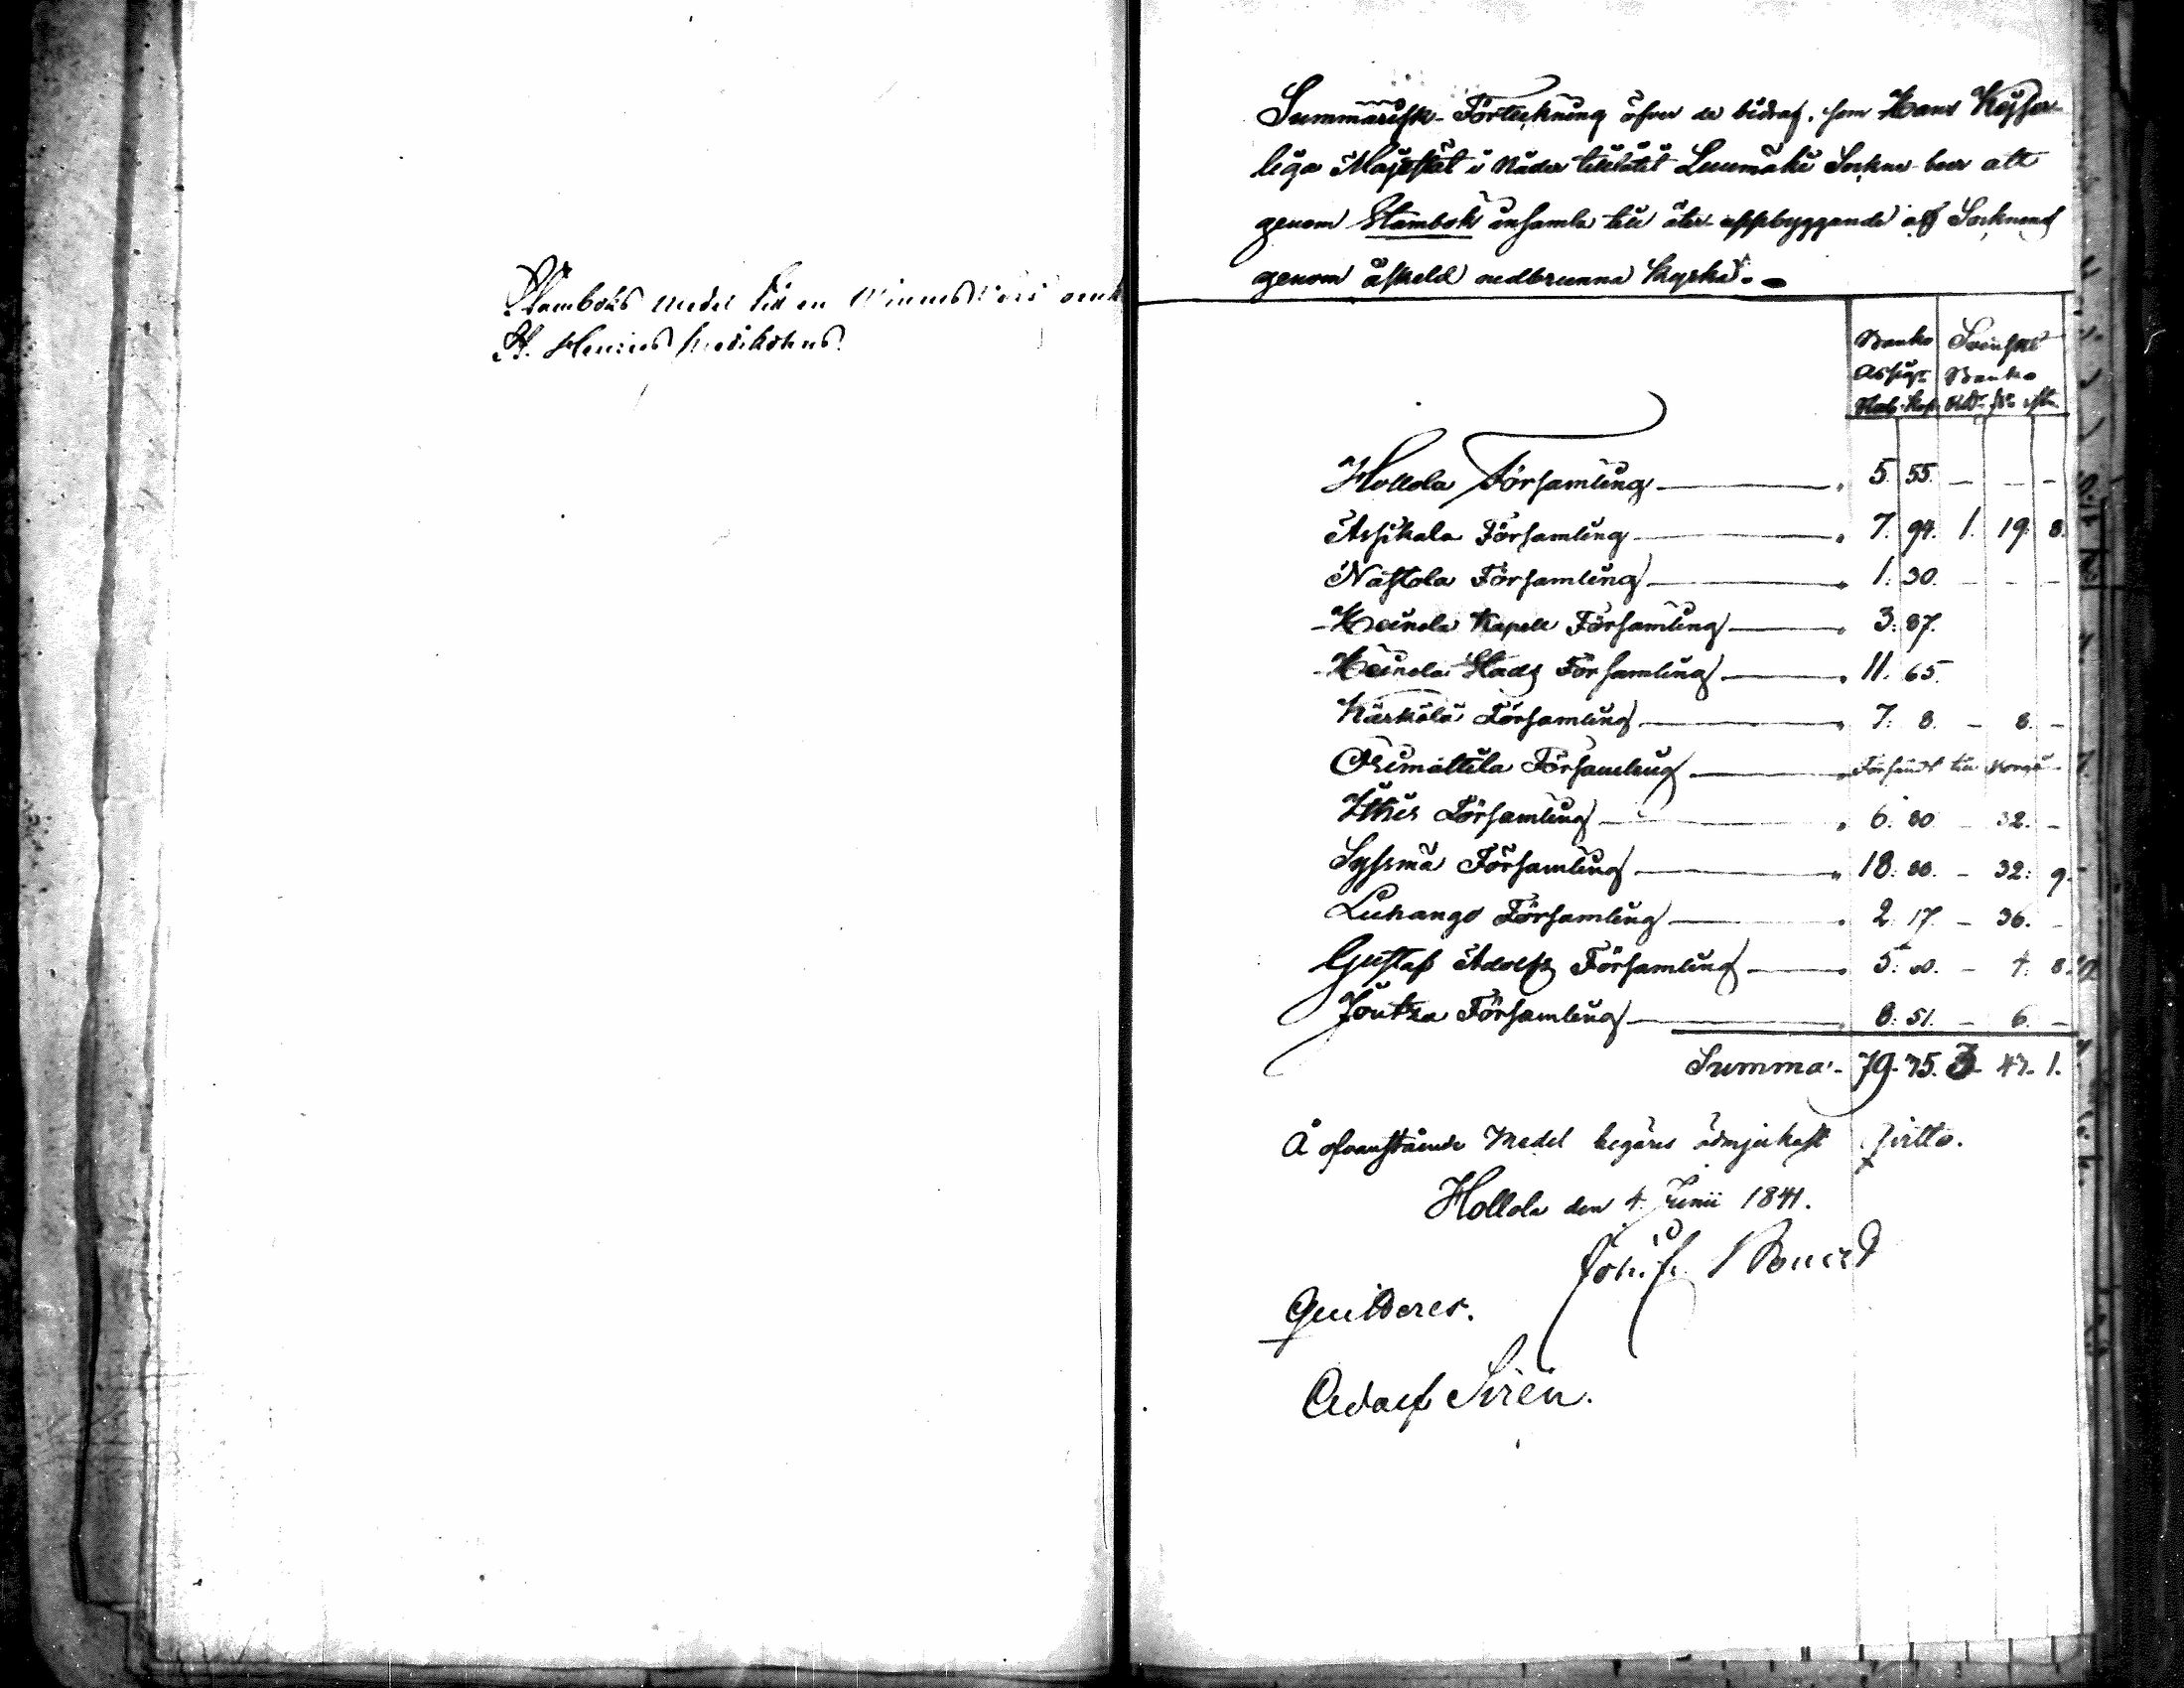 Stamboks medel till en Minnesvård och
St. Henries
Summarisk Förteckning öfver de bidrag, som Hans Kejser-
liga Majestät i Nåder tillåtit Luumäki Sockne boer att
genom Stambok insamla till åter uppbyggande af Socknens
genom åskeld nedbrunna Kyrka.
Banko Assign. Rub. Kop. Svenskt Banko Rd. sk. rst.
Hollola Församling 5. 55. - - -
Assikala Församling 7. 94. 1. 19. 8.
Nastola Församling 1. 30. - - -
Heinola Kapell Församling 3. 87.
Heinola Stads Församling 11. 65.
Kärkölä Församling 7. 8. - 8. -
Orimattila Församling Försändt till Borgå
Ithis Församling 6. 80 - 32. -
Syssmä Församling 18. 88. - 32. 9.
Luhango Församling 2. 17. - 36. -
Gustaf Adolfs Församling 5. - 4. 8.
Joutza Församling 8. 51. - 6. -
Summa 79. 75. 3. 47. 1.
Å ofvanstående Medel begäres ödmjukast Qvitto.
Hollola den 4 Junii 1841.
Qvitteres.
Adolf Sirén.